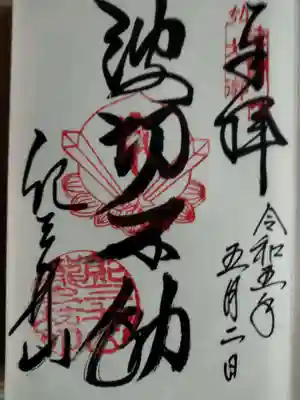 奉拝
令和五年
五月二日
波切不動
紀三井山